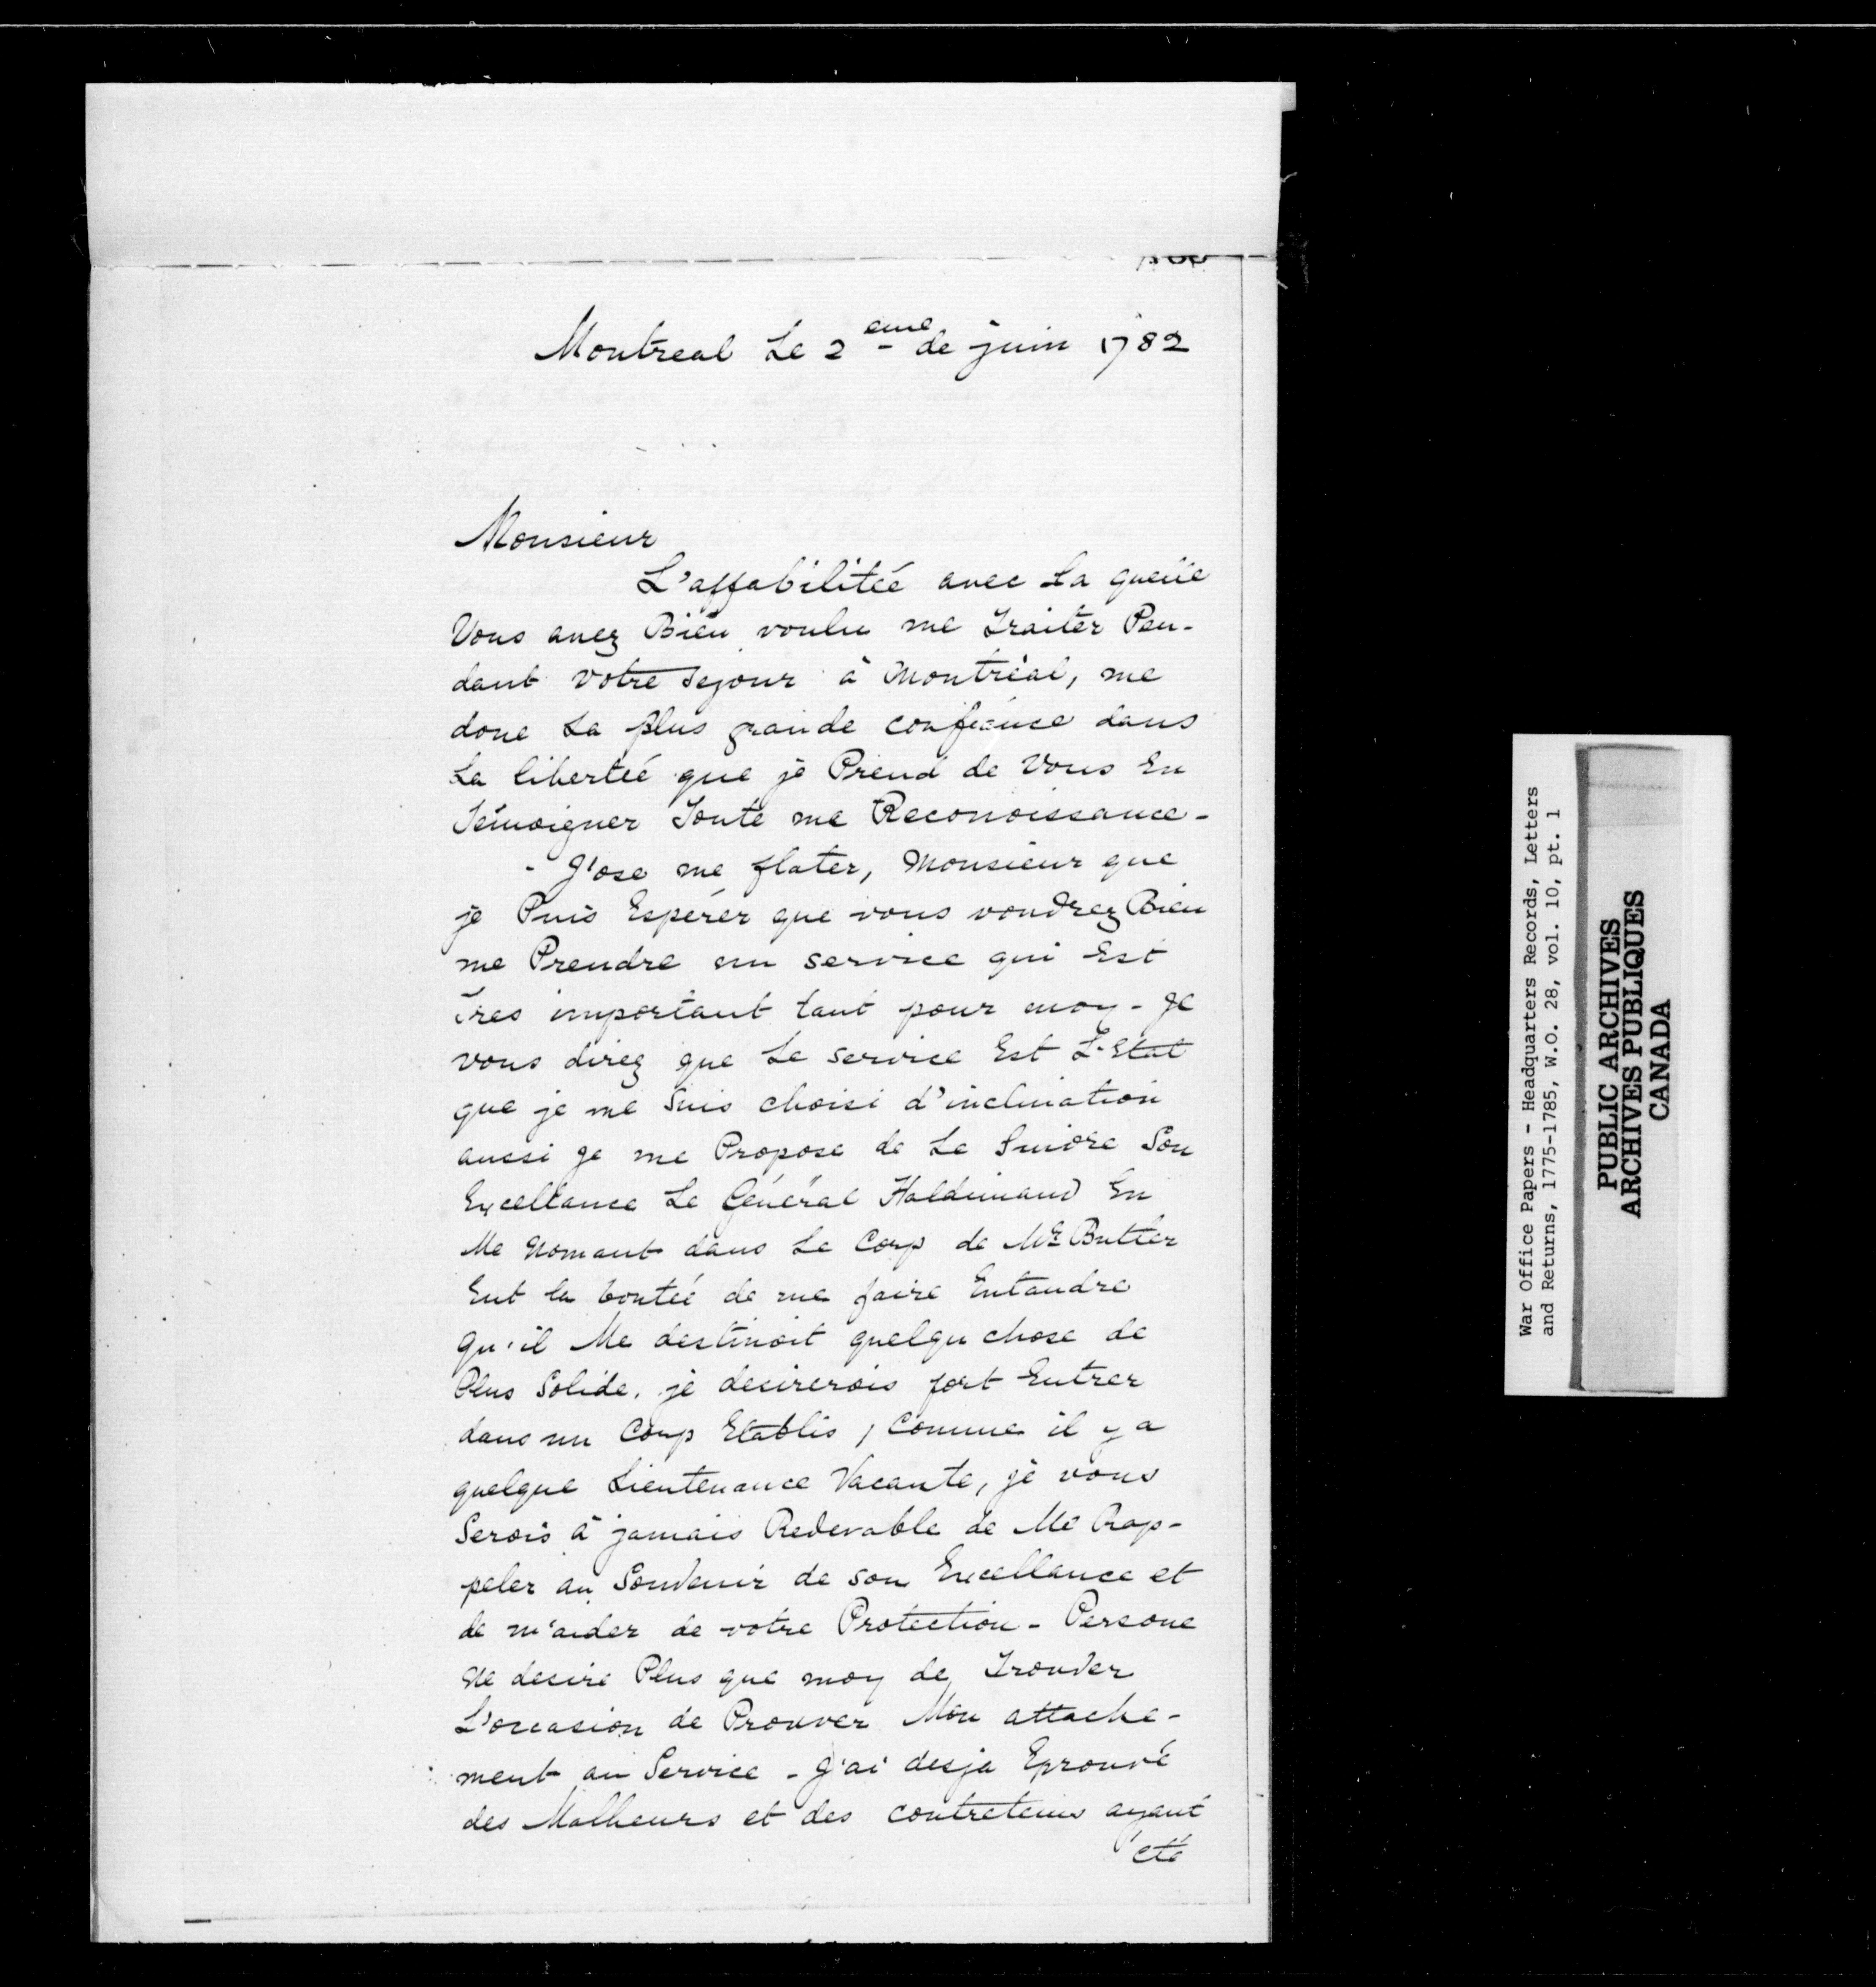 Montreal Le 2eme de juin 1782
Monsieur
L'affabilitée avec La quelle
Vous avez Bien voulu me Traiter Pen-
dant votre sejour à Montréal, me
done La plus grande confience dans
La libertée que je Prend de Vous En
Témoigner Toute me Reconoissance -
- J'ose me flater, Monsieur que
je Puis Espérer que vous voudrez Bien
me Prendre un service qui Est
Tres important tant pour moy - je
vous direz que Le service Est L'Etat
que je me suis choisi d'inclination
aussi je me Propose de Le Suivre Son
Excellance Le Général Haldimand En
Me Nomant dans Le Corp de Mr Butler
Eut la bontée de me faire Entandre
qu'il Me destinoit quelqu chose de
Plus Solide. je desirerois fort Entrer
dans un Corp Etablis, Comme il y a
quelque Lieutenance Vacante, je vous
Serois à jamais Redevable de Me Rap-
peler au Souvenir de son Excellance et
de m'aider de votre Protection - Persone
Ne desire Plus que moy de Trouver
L'occasion de Prouver Mon attache-
ment au Service - J'ai desja Eprouvé
des Malheurs et des contretems ayant
été
War Office Papers - Headquarters Records, Letters
and Returns, 1775-1785, W.O. 28, vol. 10, pt. 1
PUBLIC ARCHIVES
ARCHIVES PUBLIQUES
CANADA